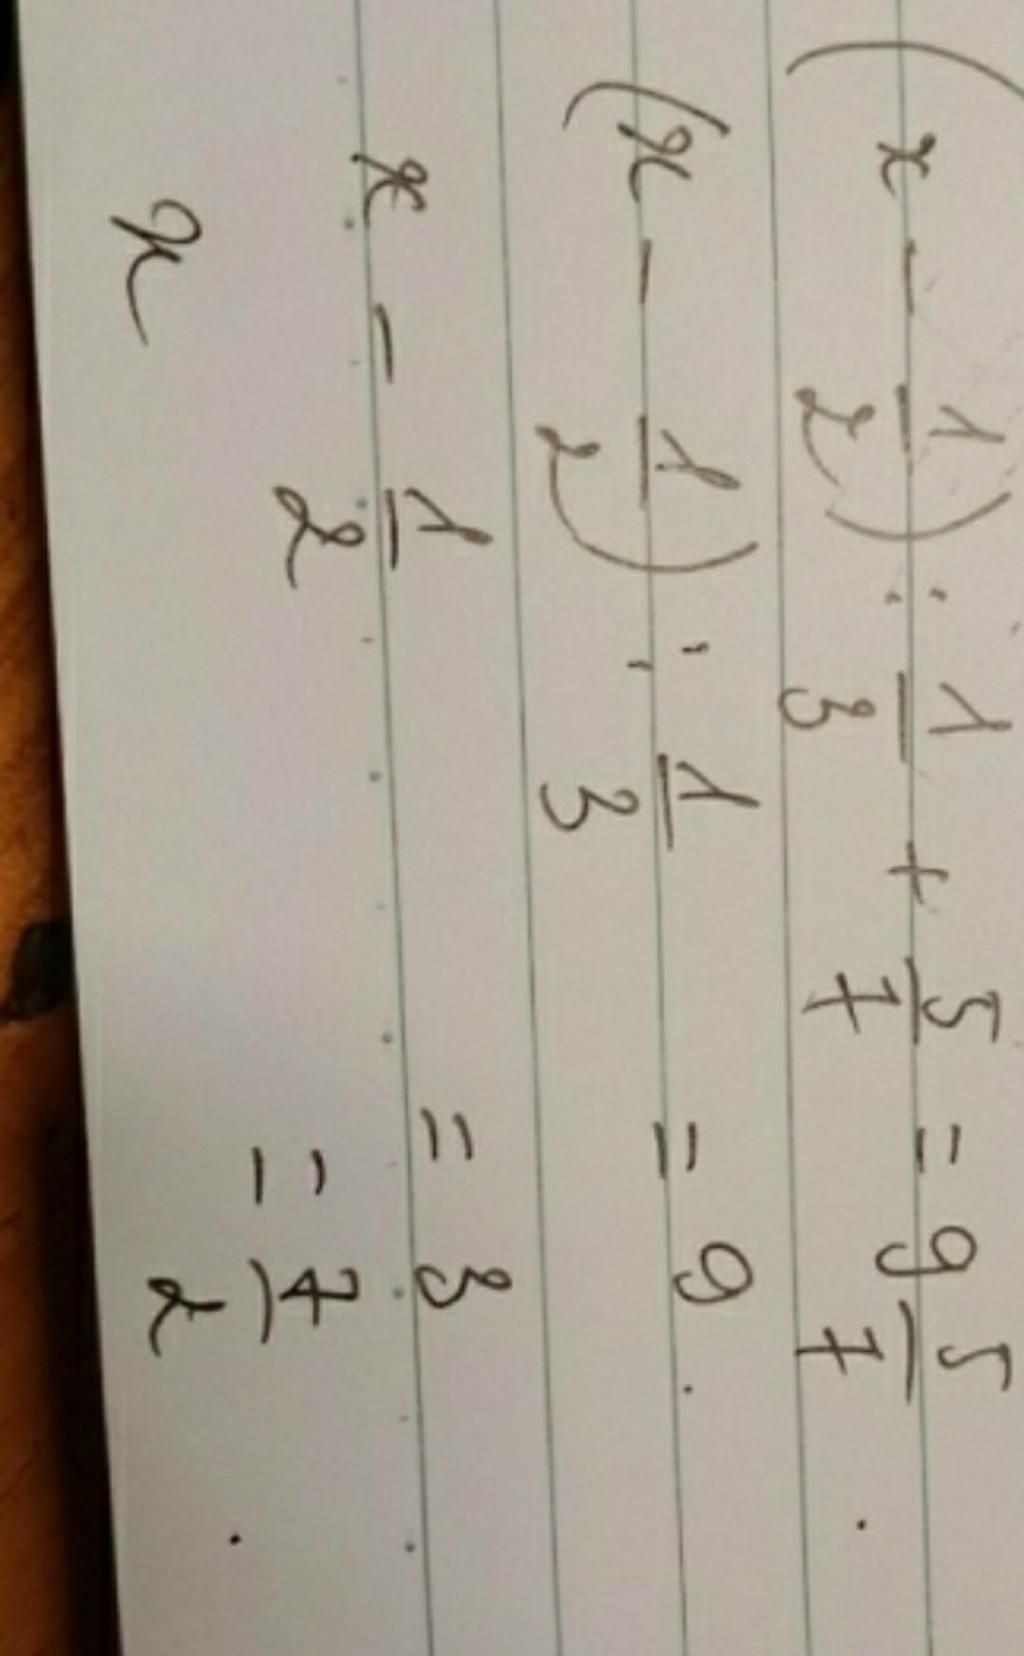 (x - 1/2) : 1/3 + 5/7 = 9 5/7
(x - 1/2) : 1/3 = 9
x - 1/2 = 3
x = 7/2